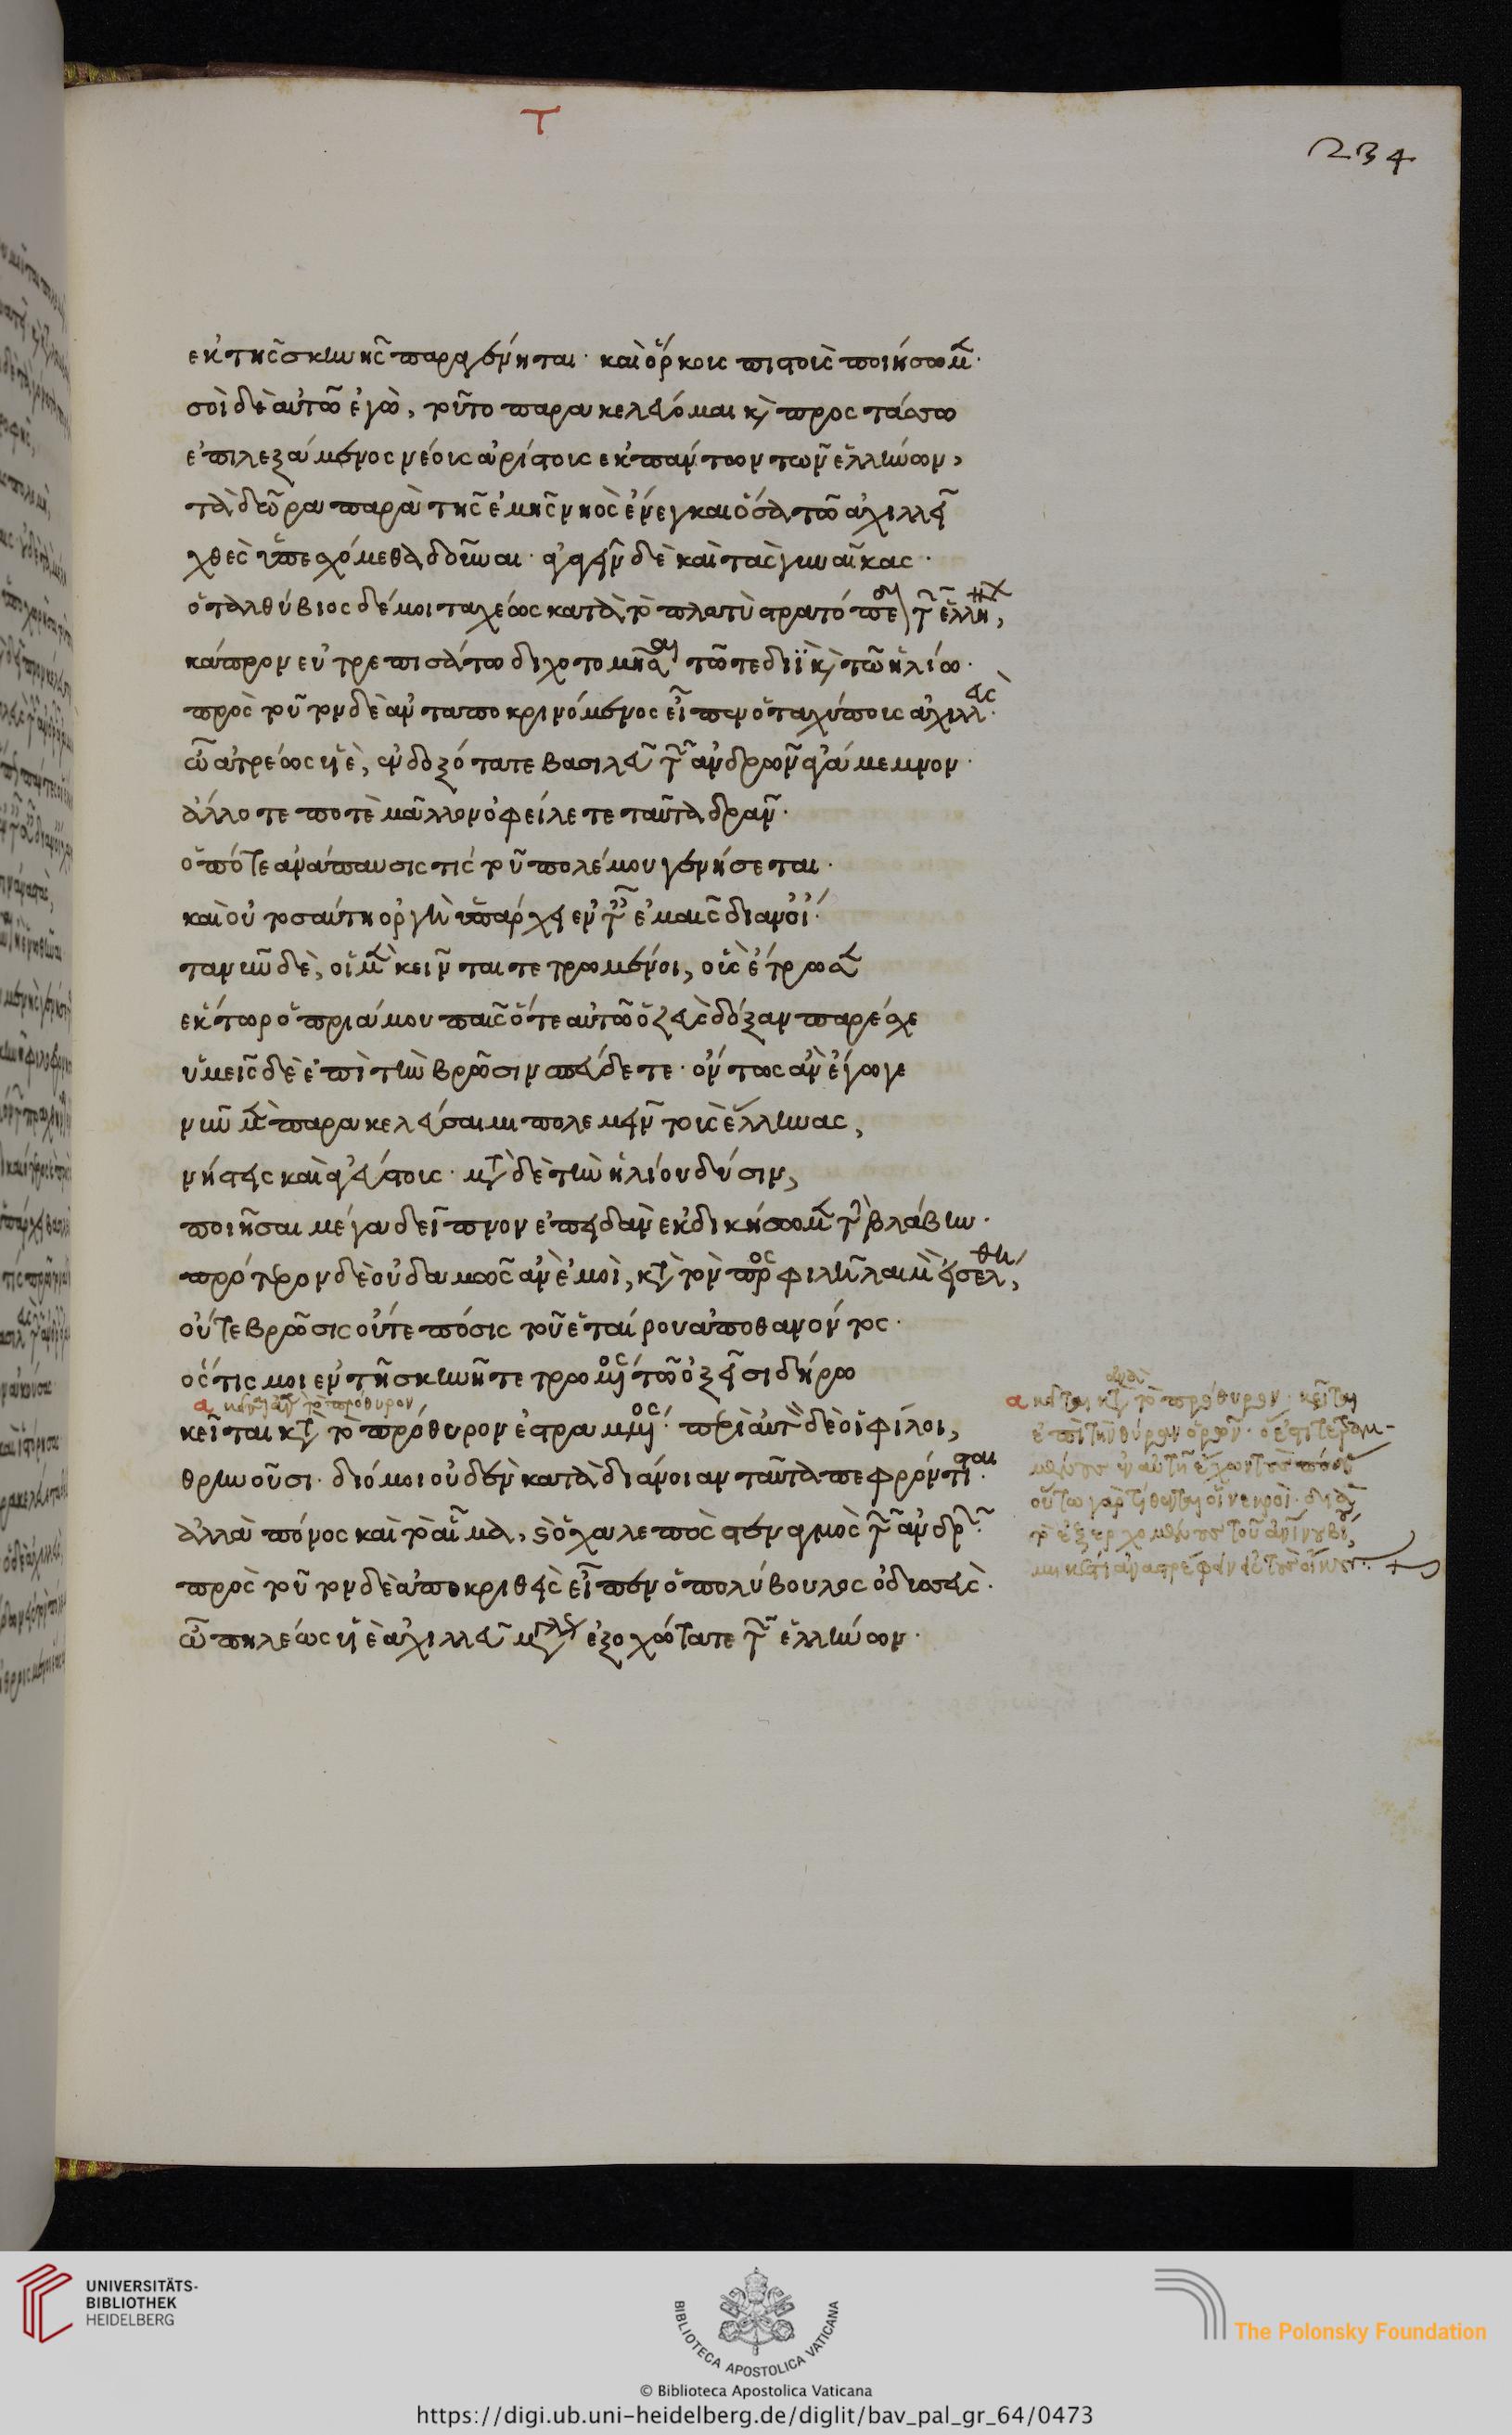 Τ
234
ἐκ τῆς σκηνῆς παραγένηται· καὶ ὅρκοις πιστοῖς ποιήσωμεν·
σοὶ δὲ αὐτῶ ἐγὼ, τοῦτο παρακελεύομαι καὶ προστάσσω
ἐπιλεξάμενος νέοις ἀρίστοις ἐκ πάντων τῶν ἑλλήνων,
τὰ δῶρα παρὰ τῆς ἐμῆς νηὸς ἐνέγκαι ὅσα τῶ ἀχιλλεῖ
χθὲς ὑπεσχόμεθα δοῦναι· ἀγαγεῖν δὲ καὶ τὰς γυναῖκας·
ὁ ταλθύβιος δέ μοι ταχέως κατὰ τὸ πλατὺ στρατόπεδον τῶν ἑλλήνων,
κάπρον εὐτρεπισάτω διχοτομῆσαι τῶ τε διῒ καὶ τῶ ἡλίω·
πρὸς τοῦτον δὲ ἀνταποκρινόμενος εἶπεν ὁ ταχύπους ἀχιλλεὺς·
ὦ ἀτρέως υἱὲ, ἐνδοξότατε βασιλεῦ τῶν ἀνδρῶν ἀγάμεμνον·
ἄλλοτε ποτὲ μᾶλλον ὀφείλετε ταῦτα δρᾶν·
ὁπότε ἀνάπαυσις τίς τοῦ πολέμου γενήσεται·
καὶ οὐ τοσαύτη ὀργὴ ὑπάρχει ἐν ταῖς ἐμαῖς διανοί·
τανῦν δὲ, οἱ μὲν κεῖνται τετρωμένοι, οὓς ἔτρωσεν
ἕκτωρ ὁ πριάμου παῖς ὅτε αὐτῶ ὁ ζεὺς δόξαν παρέσχε
ὑμεῖς δὲ ἐπὶ τὴν βρῶσιν σπεύδετε· ὄντως ἂν ἔγωγε
νῦν μὲν παρακελεύσαιμι πολεμεῖν τοὺς ἕλληνας,
νήστεις καὶ ἀγεύστους· μετὰ δὲ τὴν ἡλίου δύσιν,
ποιῆσαι μέγα δεῖπνον ἐπειδὰν ἐκδικήσωμεν τὴν βλάβην·
πρότερον δὲ οὐδαμῶς ἂν ἐμοὶ, κατὰ τὸν προσφιλῆ λαιμὸν εἰσέλθη,
οὔτε βρῶσις οὔτε πόσις τοῦ ἑταίρου ἀποθανόντος·
ὅς τις μοι ἐν τῆ σκηνῆ τετρωμένος τῶ ὀξεῖ σιδήρω
κεῖται κατὰ τὸ πρόθυρον ἐστραμμένος· περὶ αὐτὸν δὲ οἱ φίλοι,
θρηνοῦσι· διό μοι οὐδὲν κατὰ διάνοιαν ταῦτα πεφρόντισται·
ἀλλὰ πόνος καὶ τὸ αἷμα, καὶ ὁ χαλεπὸς στεναγμὸς τῶν ἀνδρῶν·
πρὸς τοῦτον δὲ ἀποκριθεὶς εἶπεν ὁ πολύβουλος ὀδυσσεὺς·
ὦ πηλέως υἱὲ ἀχιλλεῦ μεγάλως ἐξοχώτατε τῶν ἑλλήνων·
α κεῖται κατὰ τὸ πρόθυρον· κεῖται
ἐπὶ τὴν θύραν ὁρῶν·
οὕτω γὰρ τίθενται οἱ νεκροὶ·
UNIVERSITÄTS-
BIBLIOTHEK
HEIDELBERG
BIBLIOTECA APOSTOLICA VATICANA
The Polonsky Foundation
© Biblioteca Apostolica Vaticana
https://digi.ub.uni-heidelberg.de/diglit/bav_pal_gr_64/0473